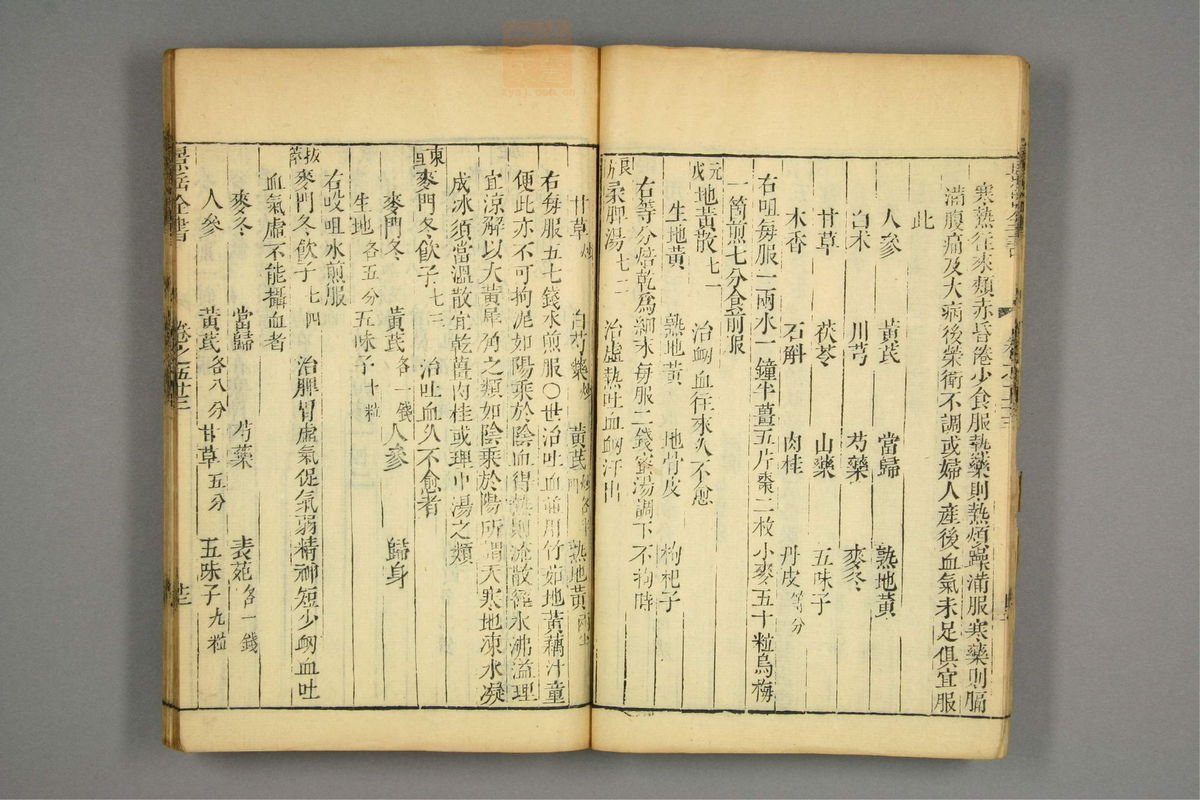 寒熱往來類赤昏倦少食服熱藥則熱煩躁滿服寒藥則膈
滿腹痛及大病後榮衛不調或婦人產後血氣未足俱宜服
此
人參 黃芪 當歸 熟地黃
白朮 川芎 芍藥 麥冬
甘草 茯苓 山藥 五味子
木香 石斛 肉桂 丹皮等分
右咀每服一兩水一鐘半薑五片棗二枚小麥五十粒烏梅
一箇煎七分食前服
元戎地黃散七一 治衂血往來久不愈
生地黃 熟地黃 地骨皮 枸杞子
右等分焙乾為細末每服二錢蜜湯調下不拘時
良方柔脾湯七二 治虛熱吐血衂汗出
甘草炒 白芍藥炒 黃芪 熟地黃
右每服五七錢水煎服○世治吐血並用竹茹地黃藕汁童
便此亦不可拘泥如陽乘於陰血得熱則流散經水沸溢理
宜涼解以大黃犀角之類如陰乘於陽所謂天寒地凍水凝
成冰須當溫散宜乾薑肉桂或理中湯之類
東垣麥門冬飲子七三 治吐血久不愈者
麥門冬 黃芪各一錢 人參 歸身
生地各五分 五味子十粒
右㕮咀水煎服
拔萃麥門冬飲子七四 治脾胃虛氣促氣弱精神短少衂血吐
血氣虛不能攝血者
麥冬 當歸 芍藥 表苑各一錢
人參 黃芪各八分 甘草五分 五味子九粒
景岳全書 卷之五廿三